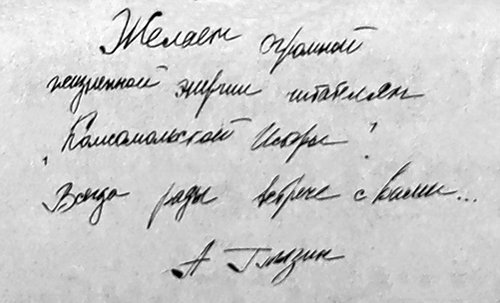 Желаем огромной
жизненной энергии читателям
"Комсомольской Искры"
Всегда рады встрече с Вами...
А Глызин